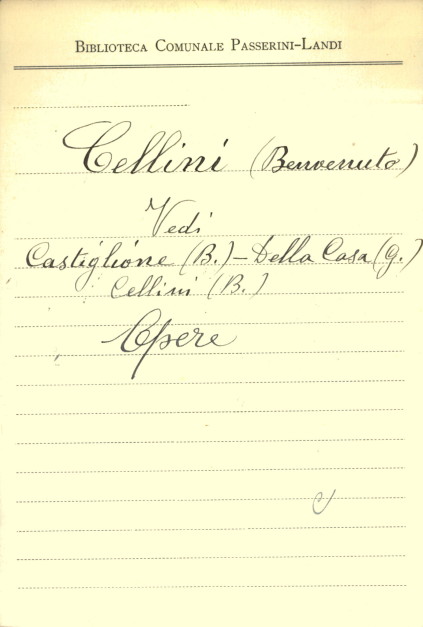 Biblioteca Comunale Passerini-Landi
Cellini (Benvenuto)
Vedi
Castiglione (B.) - Della Casa (G.)
Cellini (B.)
Opere